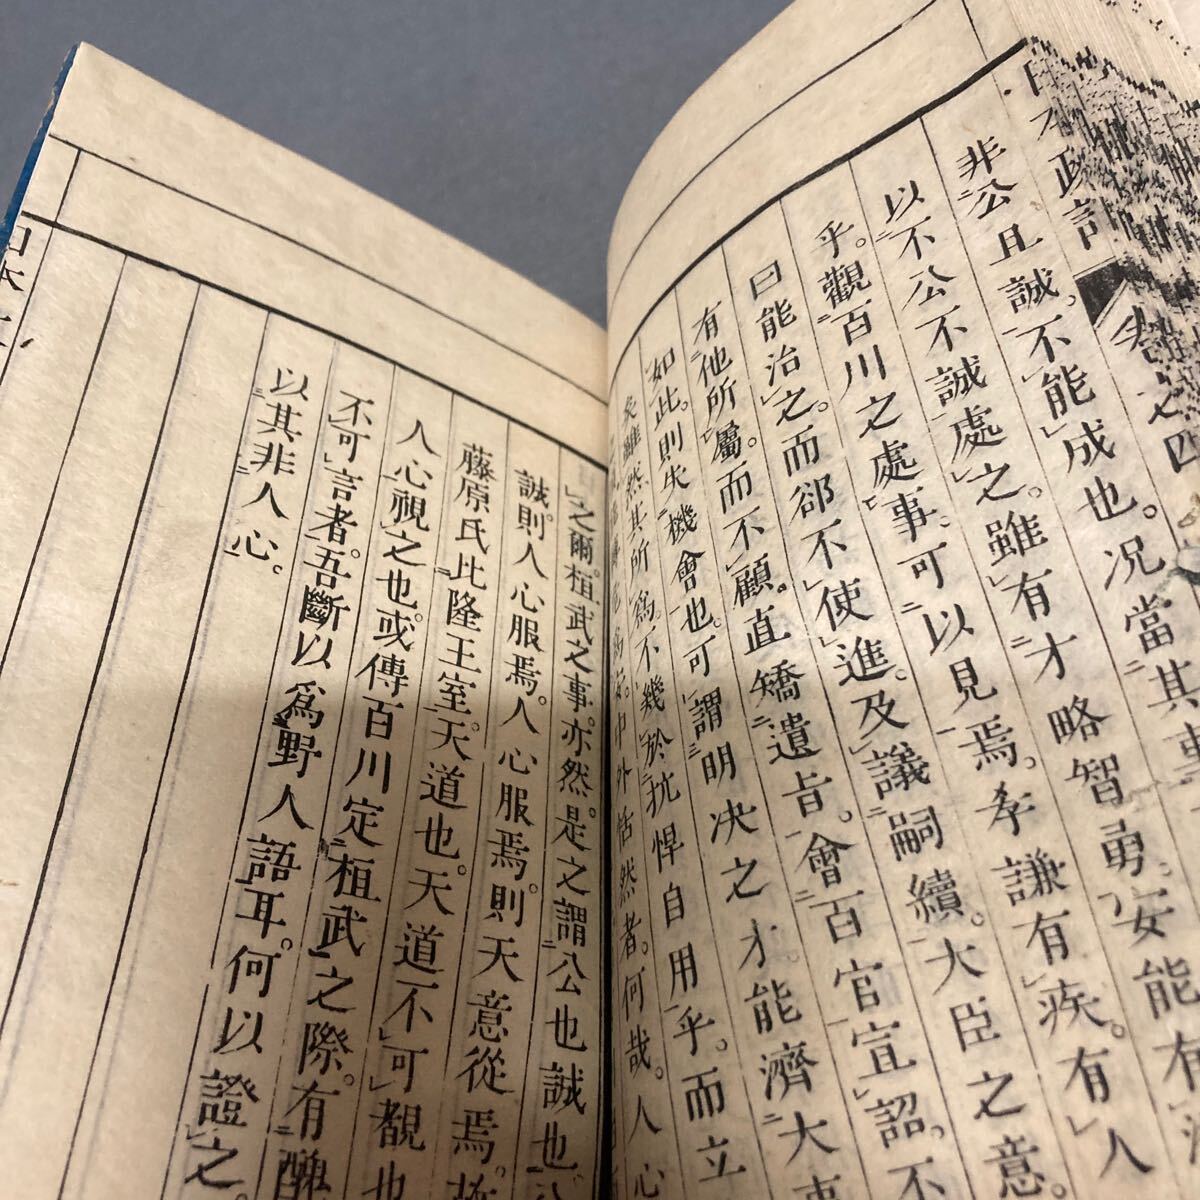 日本政記
卷之四
非公且誠。不能成也。况當其事
以不公不誠處之。雖有才略智勇。安能有
乎。觀百川之處事。可以見焉。孝謙有疾。有人
曰能治之。而郤不使進。及議嗣續。大臣之意
有他所屬。而不顧。直矯遺旨。會百官宣詔。不
如此。則失機會也。可謂明決之才。能濟大事
矣。雖然其所爲。不幾於抗悍自用乎。而立
中外恬然者。何哉。人心
之爾。桓武之事。亦然。是之謂公也誠也
誠。則人心服焉。人心服焉。則天意從焉。
藤原氏比隆王室。天道也。天道不可覩也
人心視之也。或傳百川定桓武之際。有醜
不可言者。吾斷以爲野人語耳。何以證之
以其非人心。